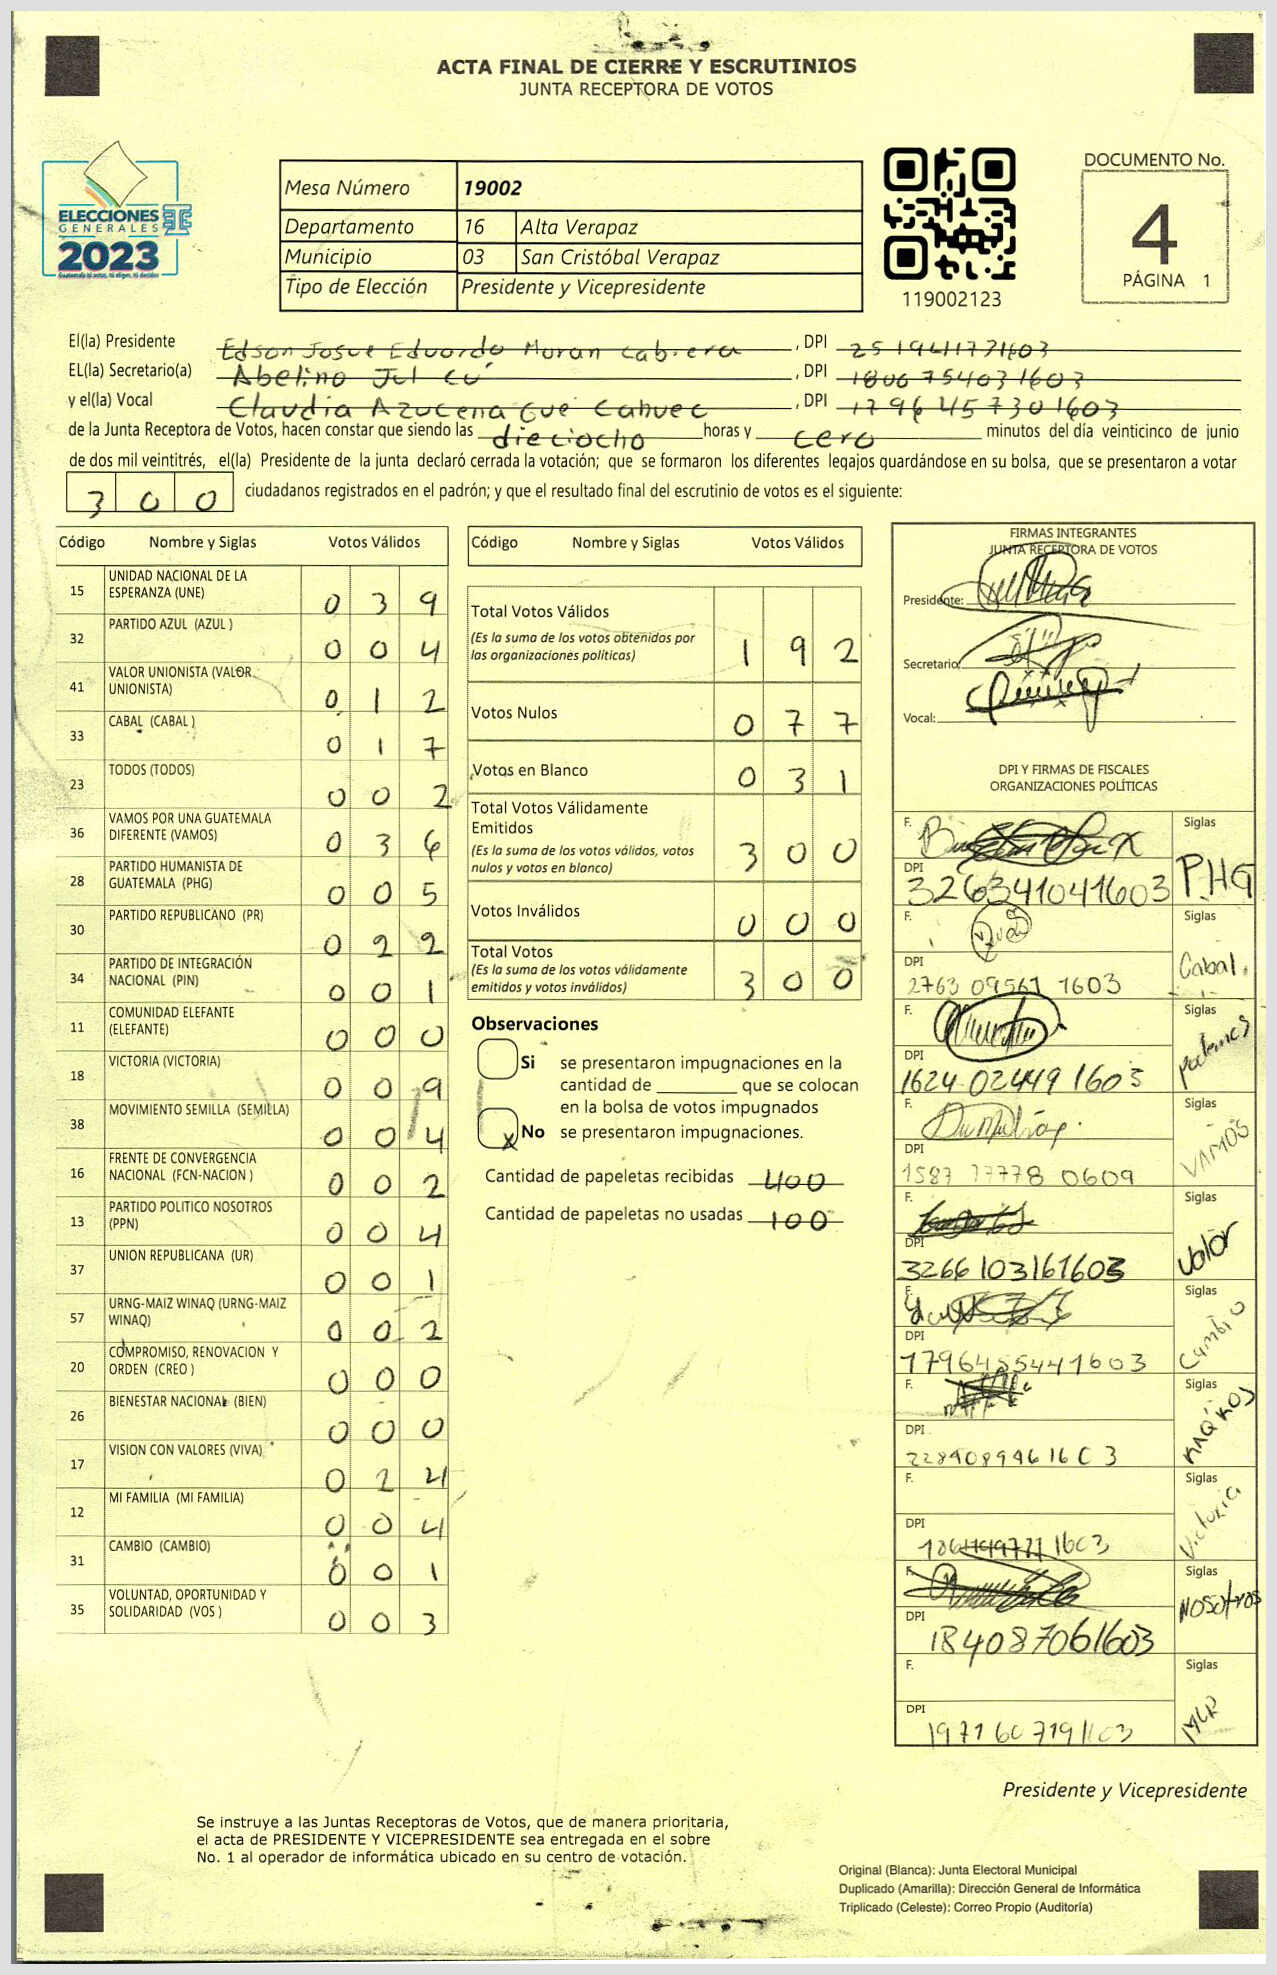 ACTA FINAL DE CIERRE Y ESCRUTINIOS
JUNTA RECEPTORA DE VOTOS
ELECCIONES
GENERALES
2023
Mesa Número 19002
Departamento 16 Alta Verapaz
Municipio 03 San Cristóbal Verapaz
Tipo de Elección Presidente y Vicepresidente
119002123
DOCUMENTO No.
4
PÁGINA 1
El(la) Presidente Edson Josue Eduardo Moran Cabrera, DPI 2519411771603
EL(la) Secretario(a) Abelino Jul Cú, DPI 1806754031603
y el(la) Vocal Claudia Azucena Gue Cahuec, DPI 1796457301603
de la Junta Receptora de Votos, hacen constar que siendo las dieciocho horas y cero minutos del día veinticinco de junio
de dos mil veintitrés, el(la) Presidente de la junta declaró cerrada la votación; que se formaron los diferentes legajos guardándose en su bolsa, que se presentaron a votar
300 ciudadanos registrados en el padrón; y que el resultado final del escrutinio de votos es el siguiente:
Código Nombre y Siglas Votos Válidos
15 UNIDAD NACIONAL DE LA ESPERANZA (UNE) 039
32 PARTIDO AZUL (AZUL ) 004
41 VALOR UNIONISTA (VALOR UNIONISTA) 012
33 CABAL (CABAL ) 017
23 TODOS (TODOS) 002
36 VAMOS POR UNA GUATEMALA DIFERENTE (VAMOS) 036
28 PARTIDO HUMANISTA DE GUATEMALA (PHG) 005
30 PARTIDO REPUBLICANO (PR) 022
34 PARTIDO DE INTEGRACIÓN NACIONAL (PIN) 001
11 COMUNIDAD ELEFANTE (ELEFANTE) 000
18 VICTORIA (VICTORIA) 009
38 MOVIMIENTO SEMILLA (SEMILLA) 004
16 FRENTE DE CONVERGENCIA NACIONAL (FCN-NACION ) 002
13 PARTIDO POLITICO NOSOTROS (PPN) 004
37 UNION REPUBLICANA (UR) 001
57 URNG-MAIZ WINAQ (URNG-MAIZ WINAQ) 002
20 COMPROMISO, RENOVACION Y ORDEN (CREO ) 000
26 BIENESTAR NACIONAL (BIEN) 000
17 VISION CON VALORES (VIVA) 024
12 MI FAMILIA (MI FAMILIA) 004
31 CAMBIO (CAMBIO) 001
35 VOLUNTAD, OPORTUNIDAD Y SOLIDARIDAD (VOS ) 003
Código Nombre y Siglas Votos Válidos
Total Votos Válidos 192
(Es la suma de los votos obtenidos por
las organizaciones políticas)
Votos Nulos 077
Votos en Blanco 031
Total Votos Válidamente
Emitidos 300
(Es la suma de los votos válidos, votos
nulos y votos en blanco)
Votos Inválidos 000
Total Votos 300
(Es la suma de los votos válidamente
emitidos y votos inválidos)
Observaciones
Si se presentaron impugnaciones en la
cantidad de ________ que se colocan
en la bolsa de votos impugnados
x No se presentaron impugnaciones.
Cantidad de papeletas recibidas 400
Cantidad de papeletas no usadas 100
FIRMAS INTEGRANTES
JUNTA RECEPTORA DE VOTOS
Presidente:
Secretario:
Vocal:
DPI Y FIRMAS DE FISCALES
ORGANIZACIONES POLÍTICAS
F. Siglas
DPI 326341041603 PHG
F. Siglas
DPI 2763 09561 1603 Cabal.
F. Siglas
DPI 1624 02449 1603 Podemos
F. Siglas
DPI 1587 77778 0609 VAMOS
F. Siglas
DPI 3266103161603 Valor
F. Siglas
DPI 1796455441603 Cambio
F. Siglas
DPI
F. Siglas
DPI Victoria
F. Siglas
DPI 184087061603 NOSOTROS
F. Siglas
DPI MLP
Presidente y Vicepresidente
Se instruye a las Juntas Receptoras de Votos, que de manera prioritaria,
el acta de PRESIDENTE Y VICEPRESIDENTE sea entregada en el sobre
No. 1 al operador de informática ubicado en su centro de votación.
Original (Blanca): Junta Electoral Municipal
Duplicado (Amarilla): Dirección General de Informática
Triplicado (Celeste): Correo Propio (Auditoría)